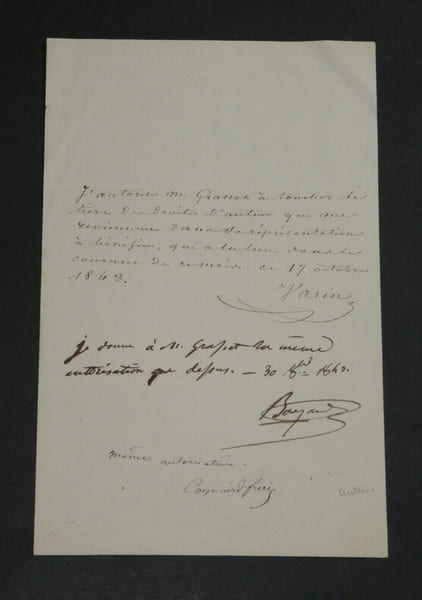 J'autorise m. Grassot à toucher le
tiers des droits d'auteur qui me
reviennent dans sa représentation
à bénéfice, qui a eu lieu dans le
courant de ce mois. ce 17 octobre
1843.
Varin
je donne à M. Grassot la même
autorisation que dessus. — 30 8bre 1843.
Bayard
même autorisation.
Cogniard frères